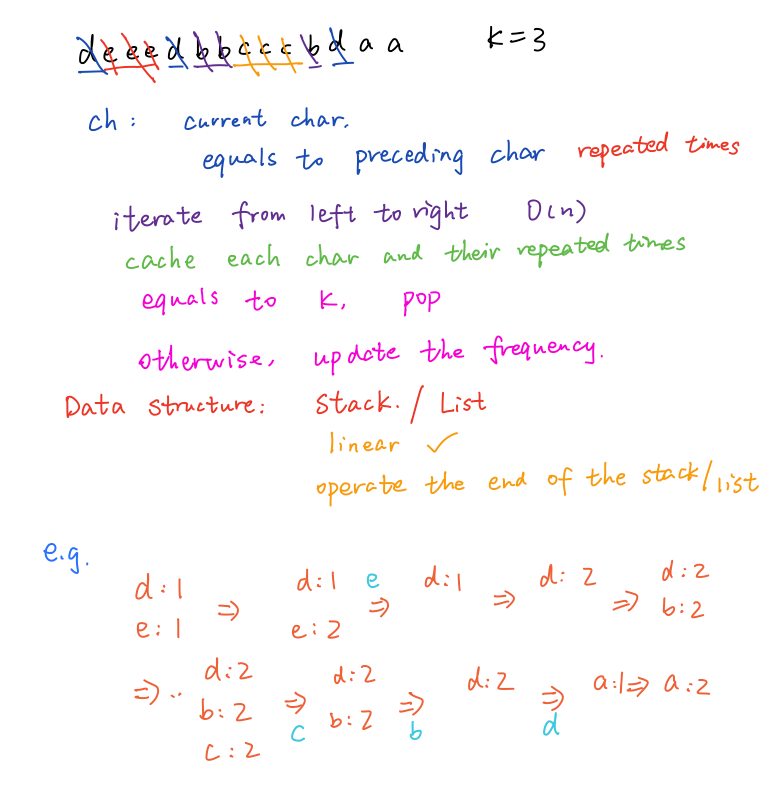 deeedbbcccbdaa k=3
ch: current char.
equals to preceding char repeated times
iterate from left to right O(n)
cache each char and their repeated times
equals to k, pop
otherwise, update the frequency.
Data structure: Stack. / List
linear ✓
operate the end of the stack/list
e.g.
d:1 d:1 e d:1 d:2 d:2
⇒ ⇒ ⇒ ⇒
e:1 e:2 b:2
d:2 d:2 d:2 a:1 ⇒ a:2
⇒ .. b:2 ⇒ b:2 ⇒ ⇒
c:2 c b d